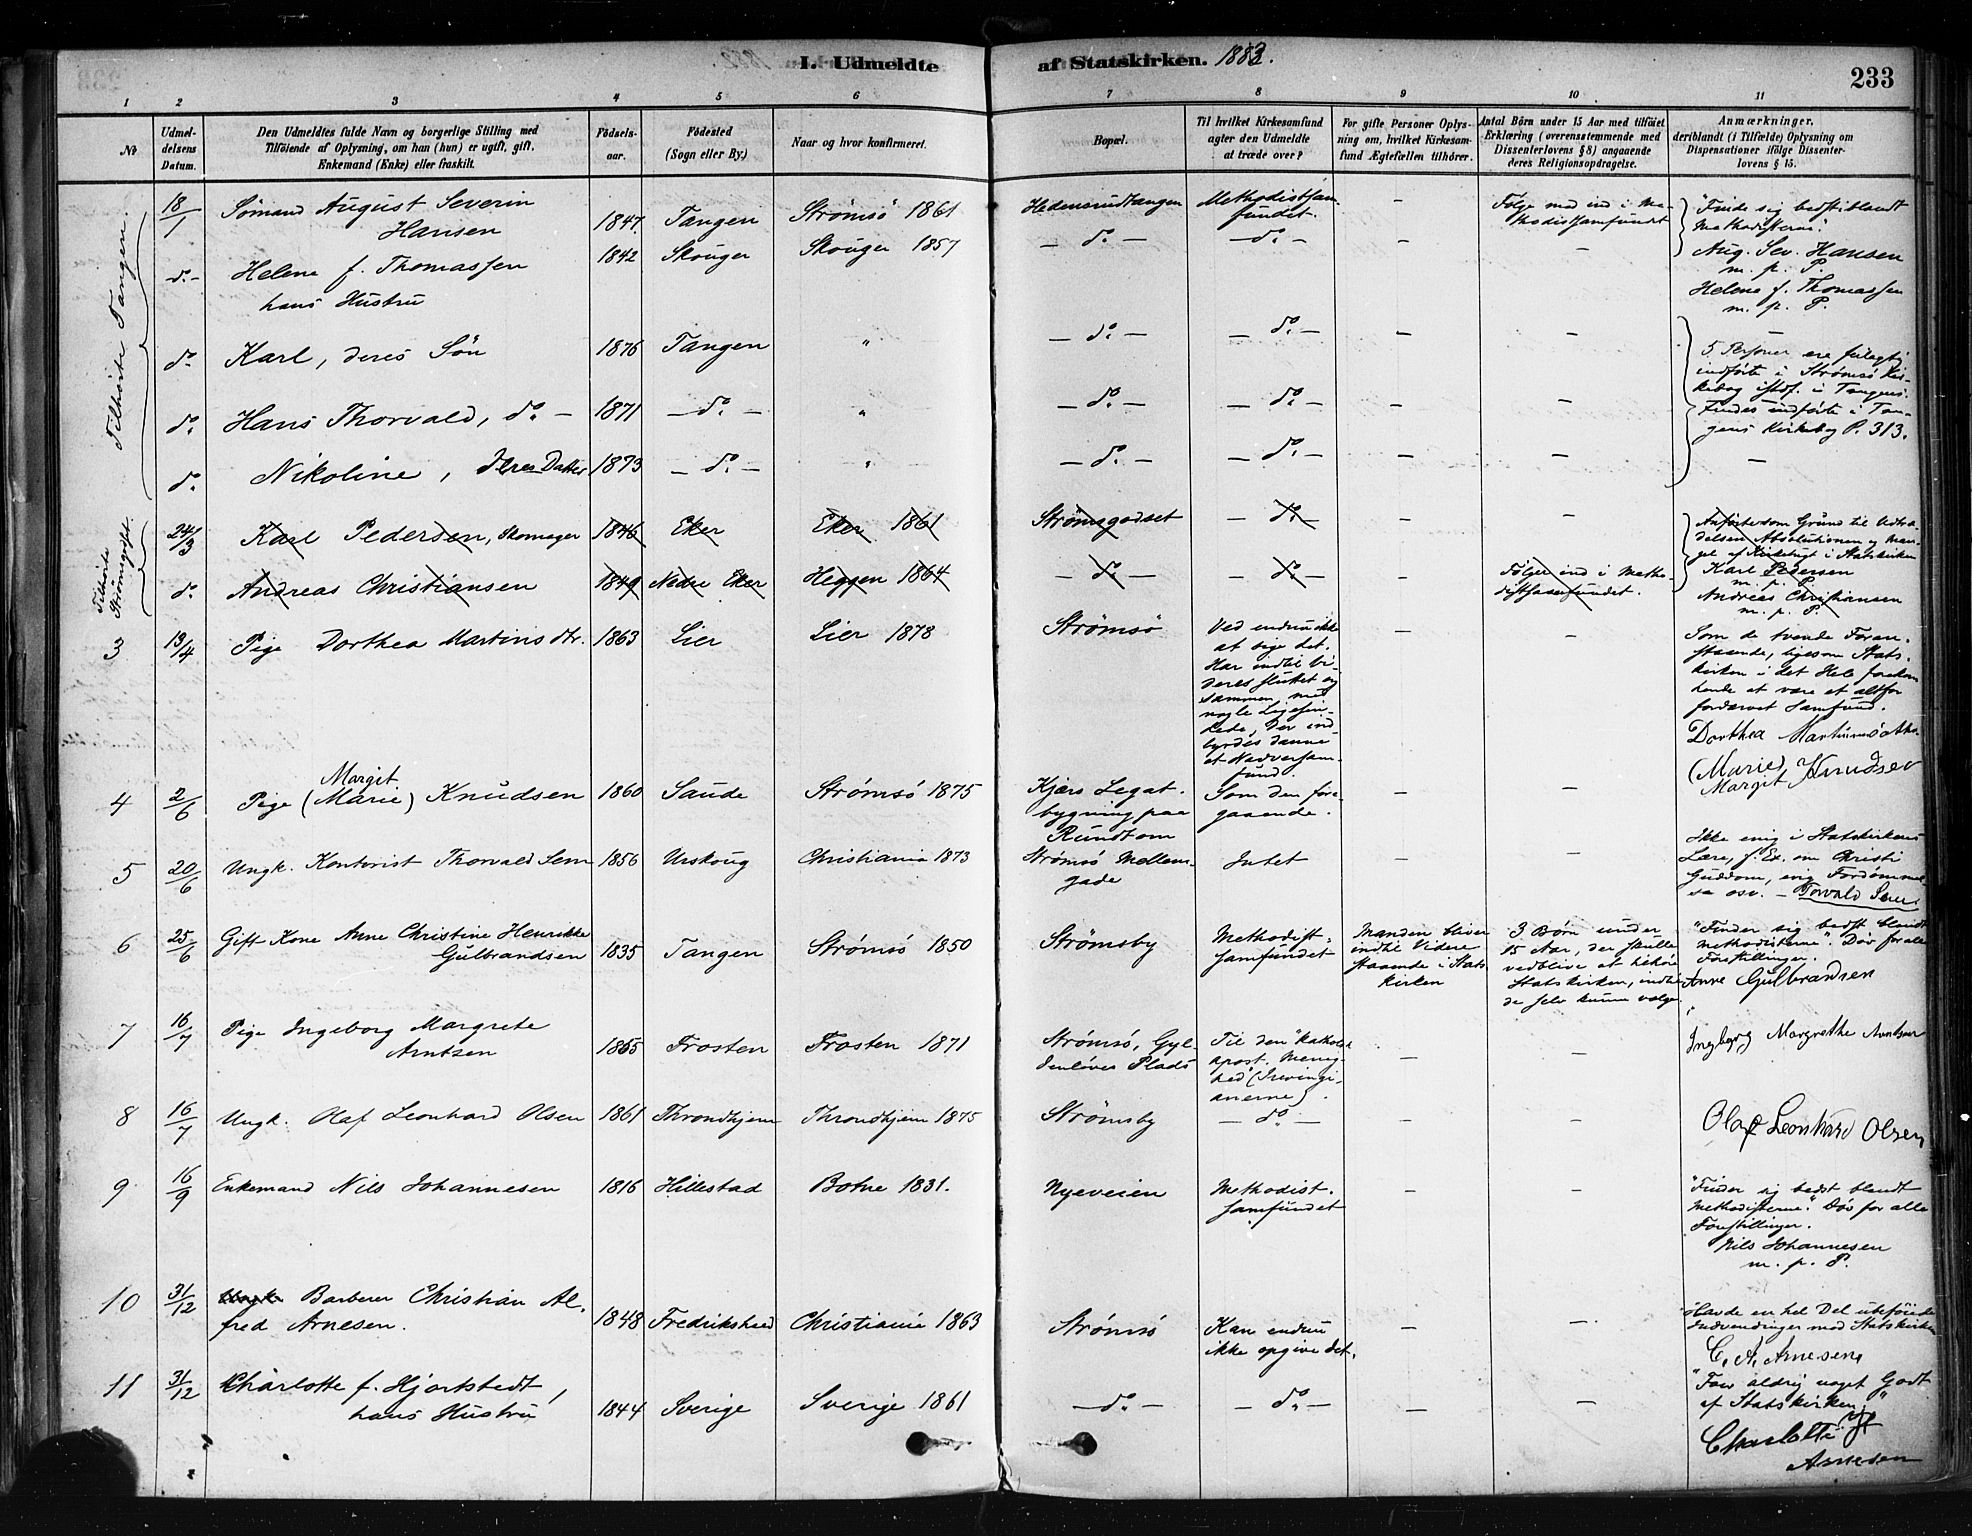 I. Udmeldte af Statskirken. 1883.
233
1 2 3 4 5 6 7 8 9 10 11
No
Udmel-
delsens
Datum.
Den Udmeldtes fulde Navn og borgerlige Stilling med
Tilføiende af Oplysning, om han (hun) er ugift, gift,
Enkemand (Enke) eller fraskilt.
Fødsels-
aar.
Fødested
(Sogn eller By.)
Naar og hvor konfirmeret.
Bopæl.
Til hvilket Kirkesamfund
agter den Udmeldte
at træde over?
For gifte Personer Oplys-
ning om, hvilket Kirkesam-
fund Ægtefællen tilhører.
Antal Børn under 15 Aar med tilføiet
Erklæring (overensstemmende med
Dissenterlovens § 8) angaaende
deres Religionsopdragelse.
Anmærkninger,
deriblandt (i Tilfælde) Oplysning om
Dispensationer ifølge Dissenter-
lovens § 15.
Tilhørte Tangen.
18/1 Sømand August Severin
Hansen 1847. Tangen Strømsö 1861 Hedensrudtangen Methodistsam-
fundet. - Følge med ind i Me-
thodistsamfundet
"Finde sig bedst iblandt
Methodisterne."
Aug. Sev. Hansen
m. p. P.
Helene f. Thomassen
m. p. P.
do - Helene f. Thomassen
hans Hustru 1842 Skouger Skouger 1857 - do - - do - - -
do Karl, deres Sön 1876 Tangen " - do - - do - - - -
5 Personer ere feilagtig
indførte i Strømsö Kir-
kebog istdf. i Tangens.
Findes indførte i Tan-
gens Kirkebog P. 313.
do Hans Thorvald, do - 1871 - do - " - do - - do - - -
do Nikoline, deres Datter 1873 - do - " - do - - do - - - -
Tilhørte
Strømsgodset
24/3 Karl Pedersen, Skomager 1846 Eker Eker 1861 Strømsgodset - do - - -
Anførte som Grund til Udtræ-
delsen Absolutionen og Man-
gel af Kirketugt i Statskirken
Karl Pedersen
m. p. P.
Andreas Christiansen
m. p. P.
do Andreas Christiansen 1849 Nedre Eker Heggen 1864 - do - - do - - Følger ind i Metho-
distsamfundet.
3 13/4 Pige Dorthea Martinsdtr. 1863 Lier Lier 1878 Strømsö
Ved endnu ikke
at sige det.
Har indtil vi-
dere sluttet sig
sammen med
nogle Ligesin-
dede, der ind-
byrdes danne
et Nadversam-
fund. - -
Som de tvende Foran-
staaende, ligesom Stats-
kirken i det Hele forekom
hende at være et altfor
fordærvet Samfund.
Dorthea Martinsdtr.
4 2/6 Margit
Pige (Marie) Knudsen 1860 Saude Strømsö 1875 Kjærs Legat-
bygning paa
Rundtom
Som den fore-
gaaende. - -
(Marie) Knudsen
Margit
5 20/6 Ungk. Kontorist Thorvald Sem 1856 Urskoug Christiania 1873 Strømsö Mellem-
gade Intet - -
Ikke enig i Statskirkens
Lære, f. Ex. om Christi
Guddom, evig Fordømmel-
se osv. - Torvald Sem
6 25/6 Gift Kone Anne Christine Henrikke
Gulbrandsen 1835 Tangen Strømsö 1850 Strømsby Methodist-
samfundet
Manden bliver
indtil Videre
staaende i Stats-
kirken
3 Børn under
15 Aar, der skulle
vedblive at tilhøre
Statskirken, indtil
de selv kunne vælge.
"Finder sig bedst blandt
Methodisterne". Døv for alle
Forestillinger.
Anne Gulbrandsen
7 16/7 Pige Ingeborg Margrete
Arntsen 1855 Frosten Frosten 1871 Strømsö, Gyl-
denløves Plads
Til den "kathol.
apost. Menig-
hed" (Irvingi-
anerne). - -
Ingeborg Margrethe Arntsen
8 16/7 Ungk. Olaf Leonhard Olsen 1861 Throndhjem Throndhjem 1875 Strømsby - do - - -
Olaf Leonhard Olsen
9 16/9 Enkemand Nils Johannesen 1816 Hillestad Botne 1831. Nyeveien Methodist-
samfundet - -
"Finder sig bedst blandt
Methodisterne." Døv for alle
Forestillinger.
Nils Johannesen
m. p. P.
10 31/12 Ungk. Barberer Christian Al-
fred Arnesen. 1848 Fredrikshald Christiania 1863 Strømsö Kan endnu
ikke opgive det. - -
"Havde en hel Del ubeføiede
Indvendinger mod Statskirken
C. A. Arnesen,
11 31/12 Charlotte f. Hjortstedt,
hans Hustru 1844 Sverige Sverige 1861 - do - - do - - -
"Faar aldrig noget Godt
af Statskirken."
Charlotte
Arnesen